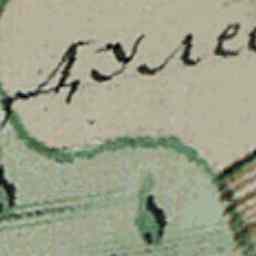 Дулео